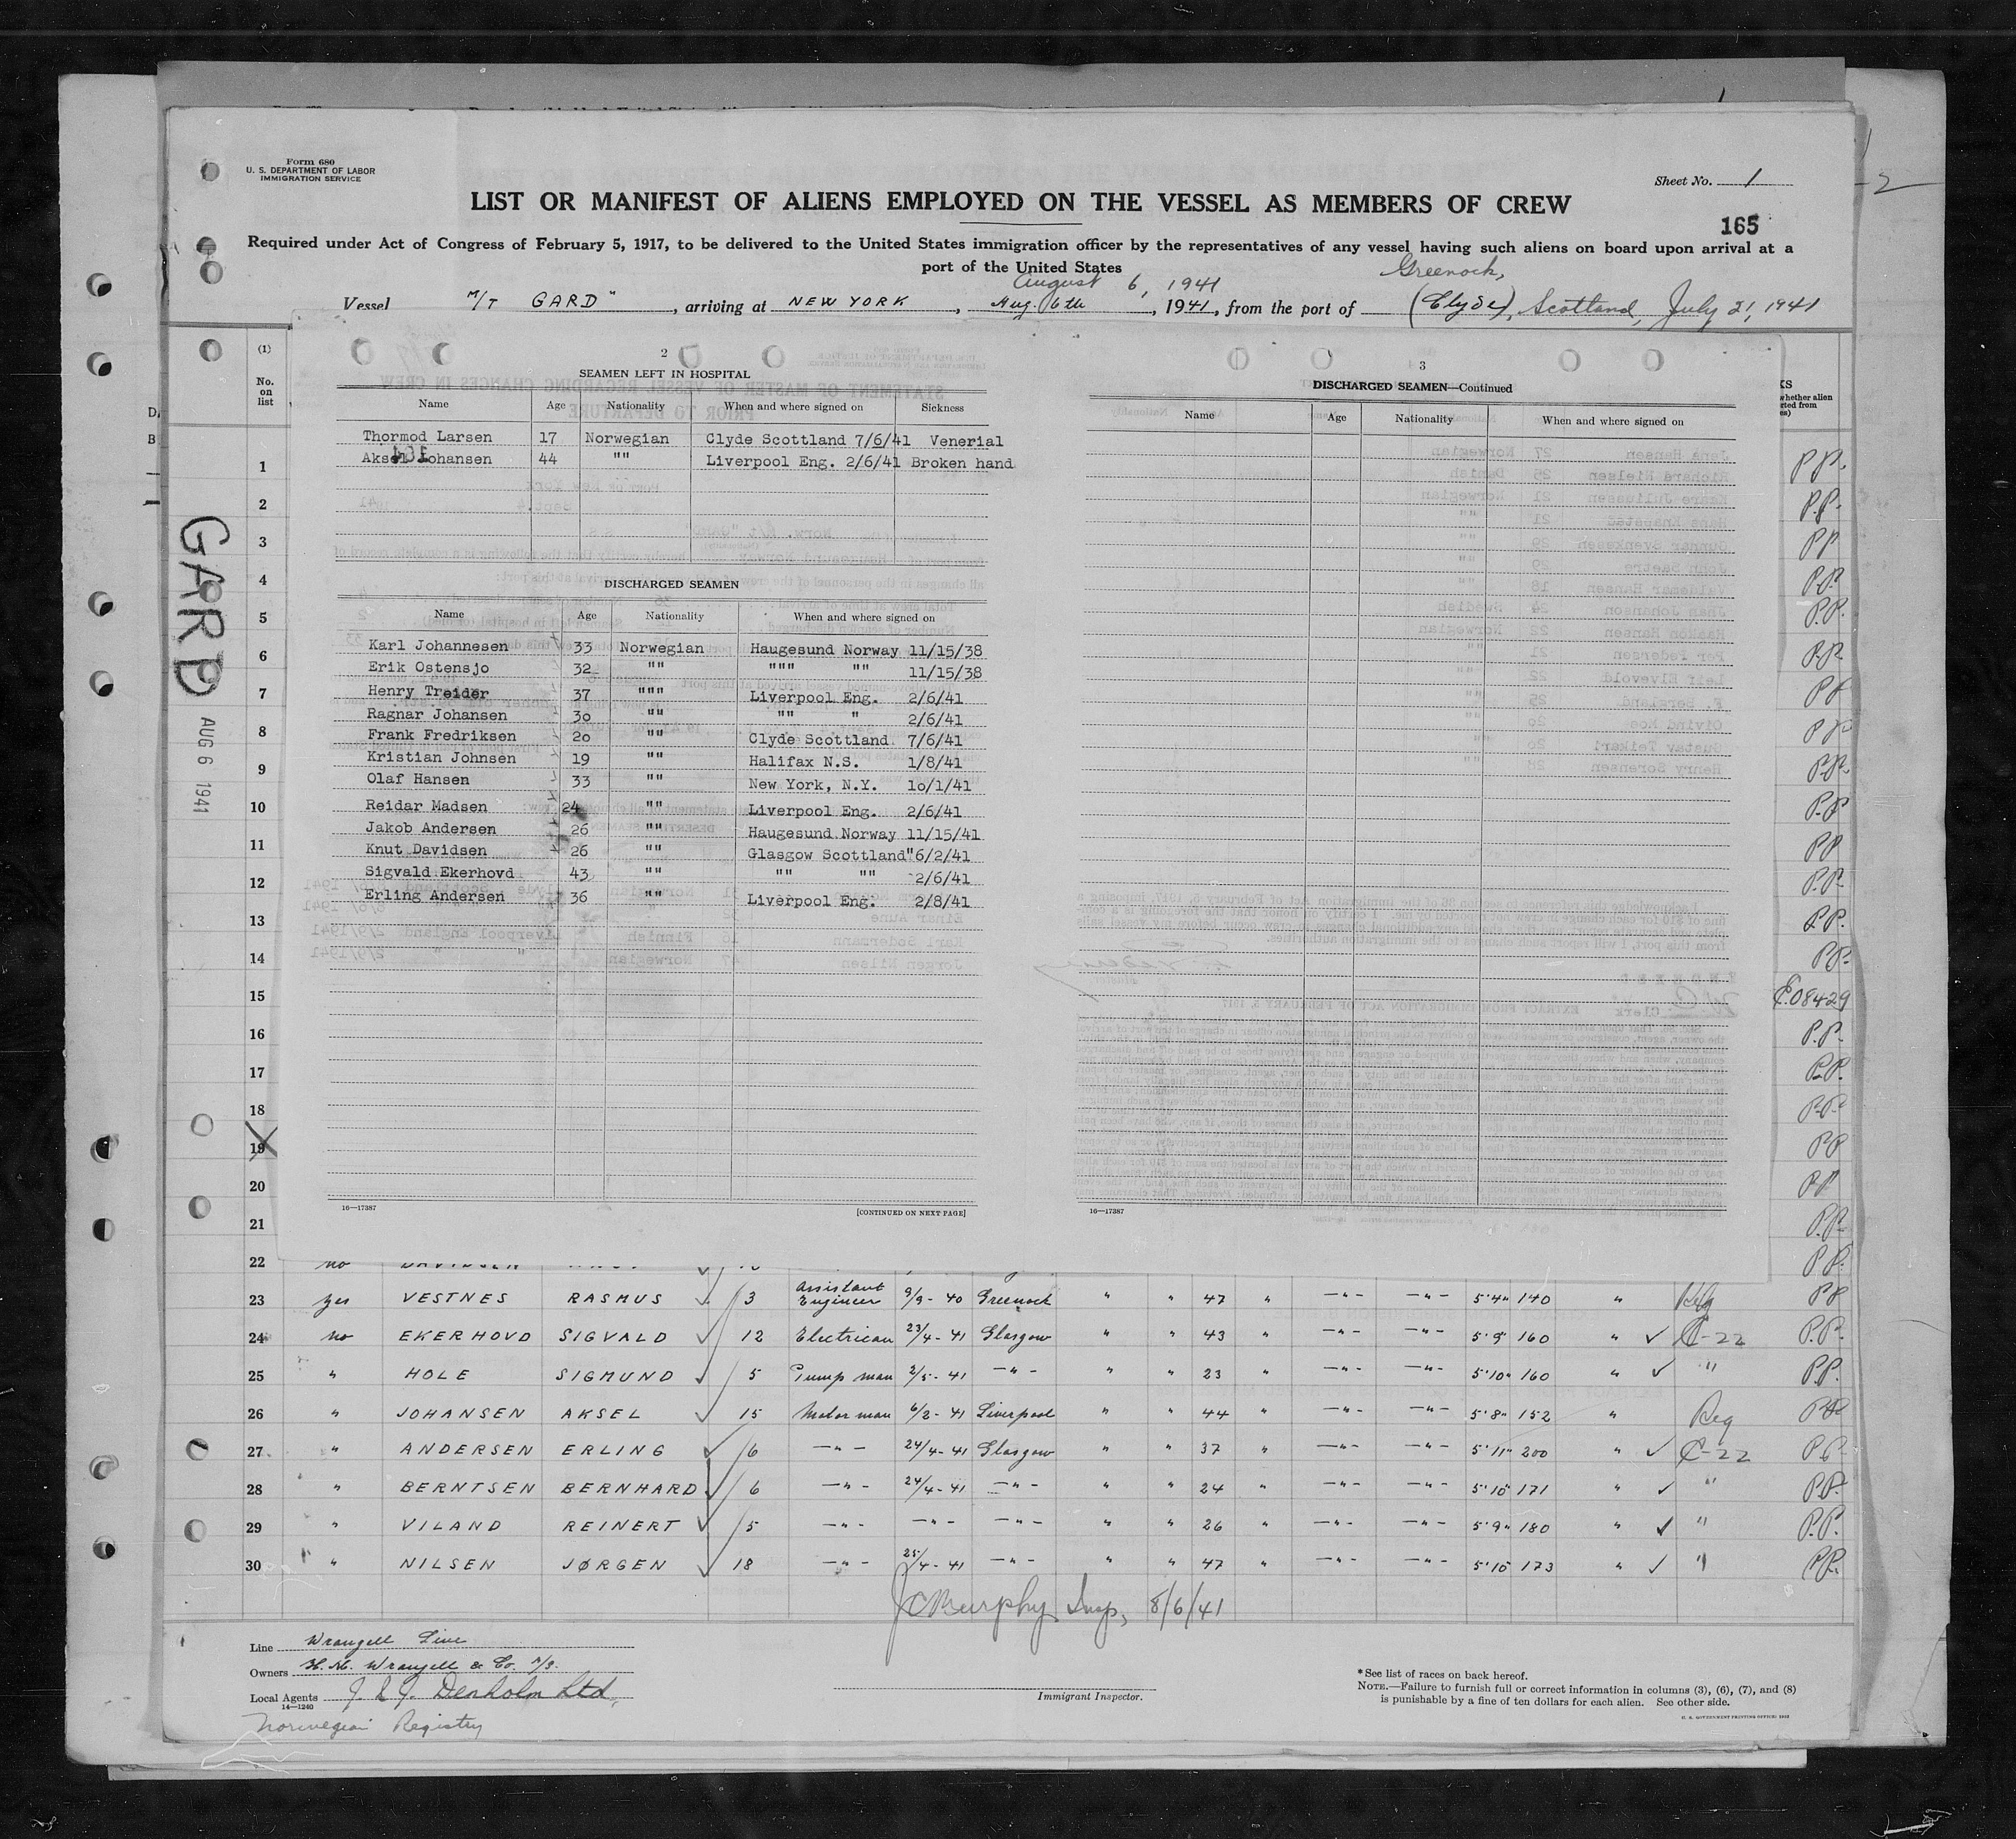 Form 680
U. S. DEPARTMENT OF LABOR
IMMIGRATION SERVICE
Sheet No. 1
-2
LIST OR MANIFEST OF ALIENS EMPLOYED ON THE VESSEL AS MEMBERS OF CREW
165
Required under Act of Congress of February 5, 1917, to be delivered to the United States immigration officer by the representatives of any vessel having such aliens on board upon arrival at a
port of the United States
August 6, 1941 Greenock,
Vessel M/T GARD", arriving at NEW YORK, Aug. 6th, 1941, from the port of (Clyde), Scotland, July 21, 1941
GARD
AUG 6 1941
(1)
No. on list
2
SEAMEN LEFT IN HOSPITAL
Name Age Nationality When and where signed on Sickness
Thormod Larsen 17 Norwegian Clyde Scottland 7/6/41 Venerial
Aksel Johansen 44 "" Liverpool Eng. 2/6/41 Broken hand
DISCHARGED SEAMEN
Name Age Nationality When and where signed on
Karl Johannesen 33 Norwegian Haugesund Norway 11/15/38
Erik Ostensjo 32 "" """ "" 11/15/38
Henry Treider 37 """ Liverpool Eng. 2/6/41
Ragnar Johansen 3o "" "" " 2/6/41
Frank Fredriksen 2o "" Clyde Scottland 7/6/41
Kristian Johnsen 19 "" Halifax N.S. 1/8/41
Olaf Hansen 33 "" New York, N.Y. 1o/1/41
Reidar Madsen 24 "" Liverpool Eng. 2/6/41
Jakob Andersen 26 "" Haugesund Norway 11/15/41
Knut Davidsen 26 "" Glasgow Scottland "6/2/41
Sigvald Ekerhovd 43 "" "" "" 2/6/41
Erling Andersen 36 "" Liverpool Eng. 2/8/41
16—17387 [CONTINUED ON NEXT PAGE]
3
DISCHARGED SEAMEN—Continued
Name Age Nationality When and where signed on
16—17387
1 P.P.
2 P.P.
3 P.P.
4 P.P.
5 P.P.
6 P.P.
7 P.P.
8 P.P.
9 P.P.
10 P.P.
11 P.P.
12 P.P.
13 P.P.
14 P.P.
15 E.08429
16 P.P.
17 P.P.
18 P.P.
19 P.P.
20 P.P.
21 P.P.
22 no P.P.
23 yes VESTNES RASMUS 3 Assistant Engineer 9/9-40 Greenock " " 47 " —"— —"— 5'4" 140 " Reg P.P.
24 no EKERHOVD SIGVALD 12 Electrican 23/4-41 Glasgow " " 43 " —"— —"— 5'9" 160 " C-22 P.P.
25 " HOLE SIGMUND 5 Pump man 2/5-41 —"— " " 23 " —"— —"— 5'10" 160 " " P.P.
26 " JOHANSEN AKSEL 15 Motor man 6/2-41 Liverpool " " 44 " —"— —"— 5'8" 152 " Reg P.P.
27 " ANDERSEN ERLING 6 —"— 24/4-41 Glasgow " " 37 " —"— —"— 5'11" 200 " C-22 P.P.
28 " BERNTSEN BERNHARD 6 —"— 24/4-41 —"— " " 24 " —"— —"— 5'10" 171 " " P.P.
29 " VILAND REINERT 5 —"— —"— —"— " " 26 " —"— —"— 5'9" 180 " " P.P.
30 " NILSEN JØRGEN 18 —"— 25/4-41 —"— " " 47 " —"— —"— 5'10" 173 " " P.P.
JCMurphy Insp, 8/6/41
Line Wrangell Line
Owners H. M. Wrangell & Co. A/S.
Local Agents J. & J. Denholm Ltd.
14—1240
Norwegian Registry
Immigrant Inspector.
*See list of races on back hereof.
NOTE.—Failure to furnish full or correct information in columns (3), (6), (7), and (8)
is punishable by a fine of ten dollars for each alien. See other side.